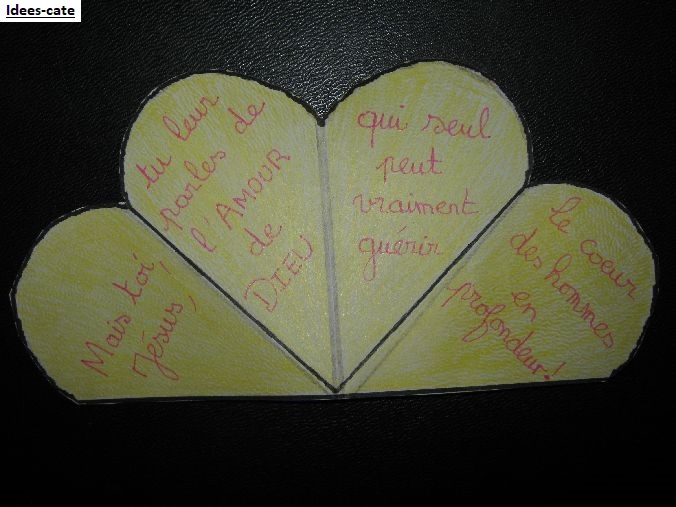 Idees-cate
Mais toi,
Jésus,
tu leur
parles de
l'AMOUR
de
DIEU
qui seul
peut
vraiment
guérir
le coeur
des hommes
en
profondeur!